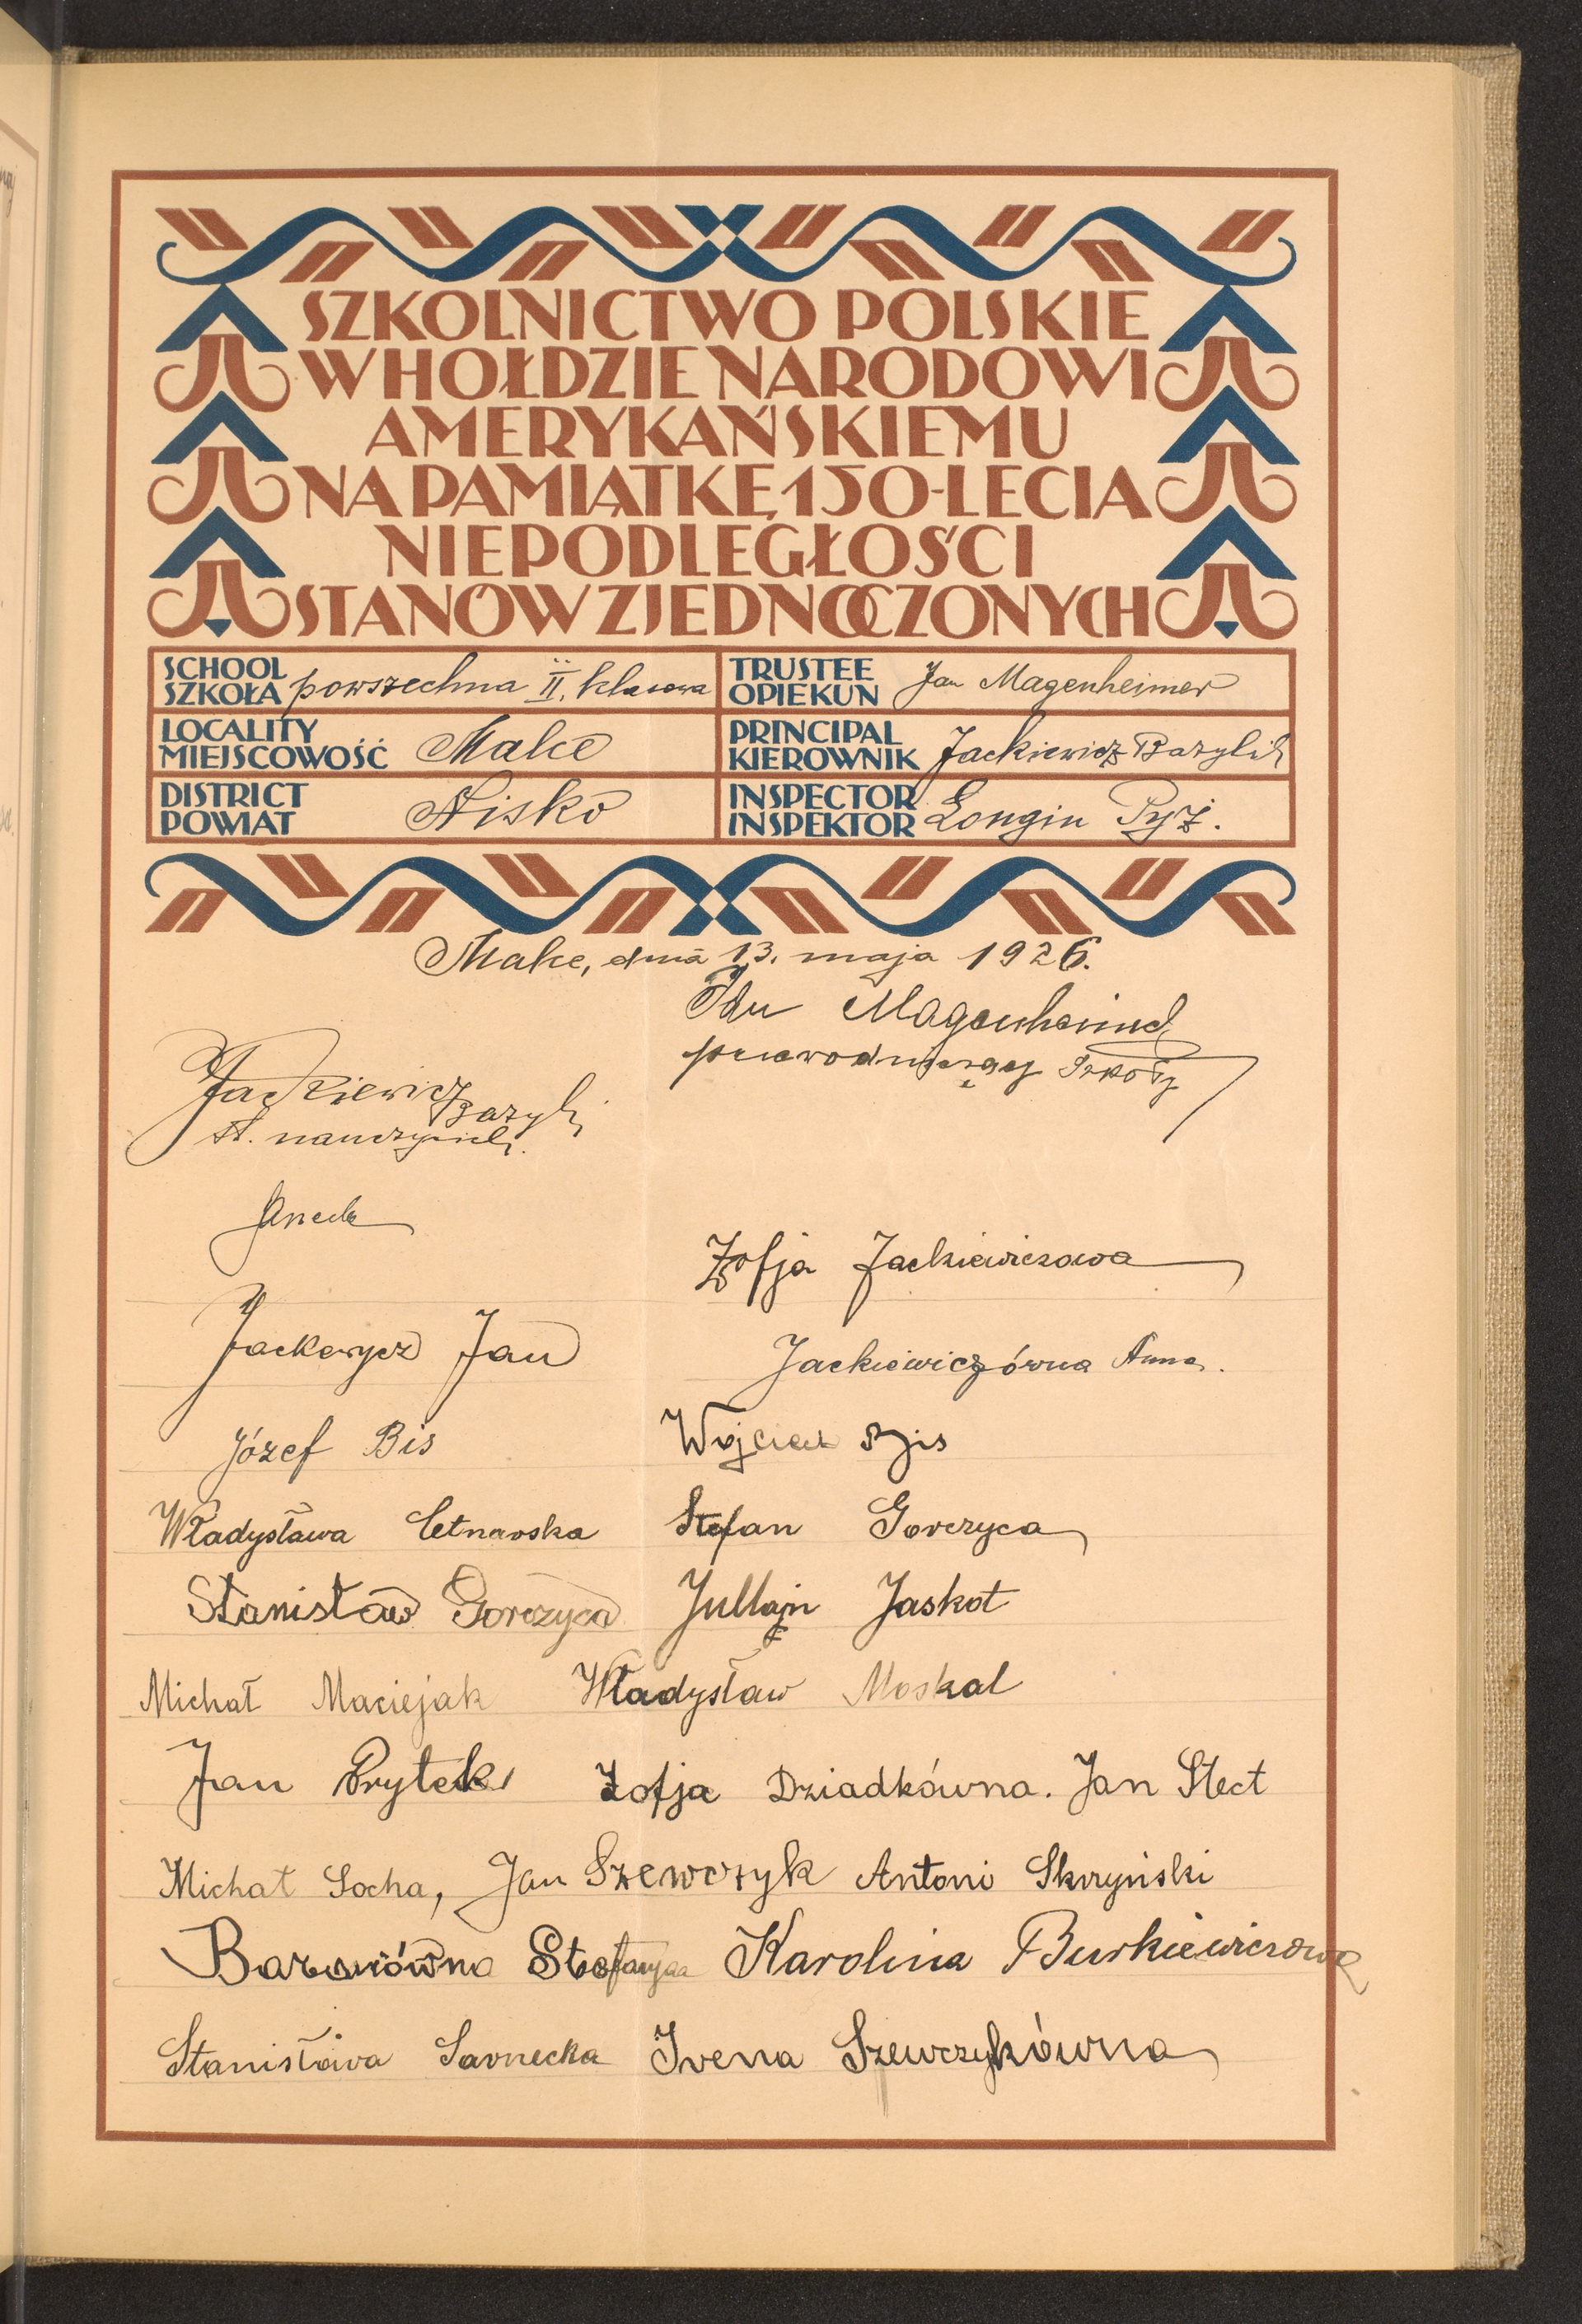 SZKOLNICTWO POLSKIE
W HOŁDZIE NARODOWI
AMERYKAŃSKIEMU
NA PAMIĄTKĘ 150-LECIA
NIEPODLEGŁOŚCI
STANÓW ZJEDNOCZONYCH
SCHOOL SZKOŁA powszechna II. klasowa
TRUSTEE OPIEKUN Jan Magenheimer
LOCALITY MIEJSCOWOŚĆ Malce
PRINCIPAL KIEROWNIK Jackiewicz Bazyli
DISTRICT POWIAT Nisko
INSPECTOR INSPEKTOR Longin Pyż.
Malce, dnia 13. maja 1926.
Jan Magenheimer
przewodniczący Szkoły
Jackiewicz Bazyli
st. nauczyciel.
Zofja Jackiewiczowa
Jackewycz Jan Jackiewiczówna Anna.
Józef Bis Wojciech Bis
Władysława Letnaoska Stefan Gorczyca
Stanisław Gorczyca Julljan Jaskot
Michał Maciejak Władysław Moskal
Jan Prytek Zofja Dziadkówna. Jan Stect
Michał Socha, Jan Szewczyk Antoni Skrzyński
Stefanja Karolina Burkiewiczowa
Stanisława Sarnecka Irena Szewczykówna